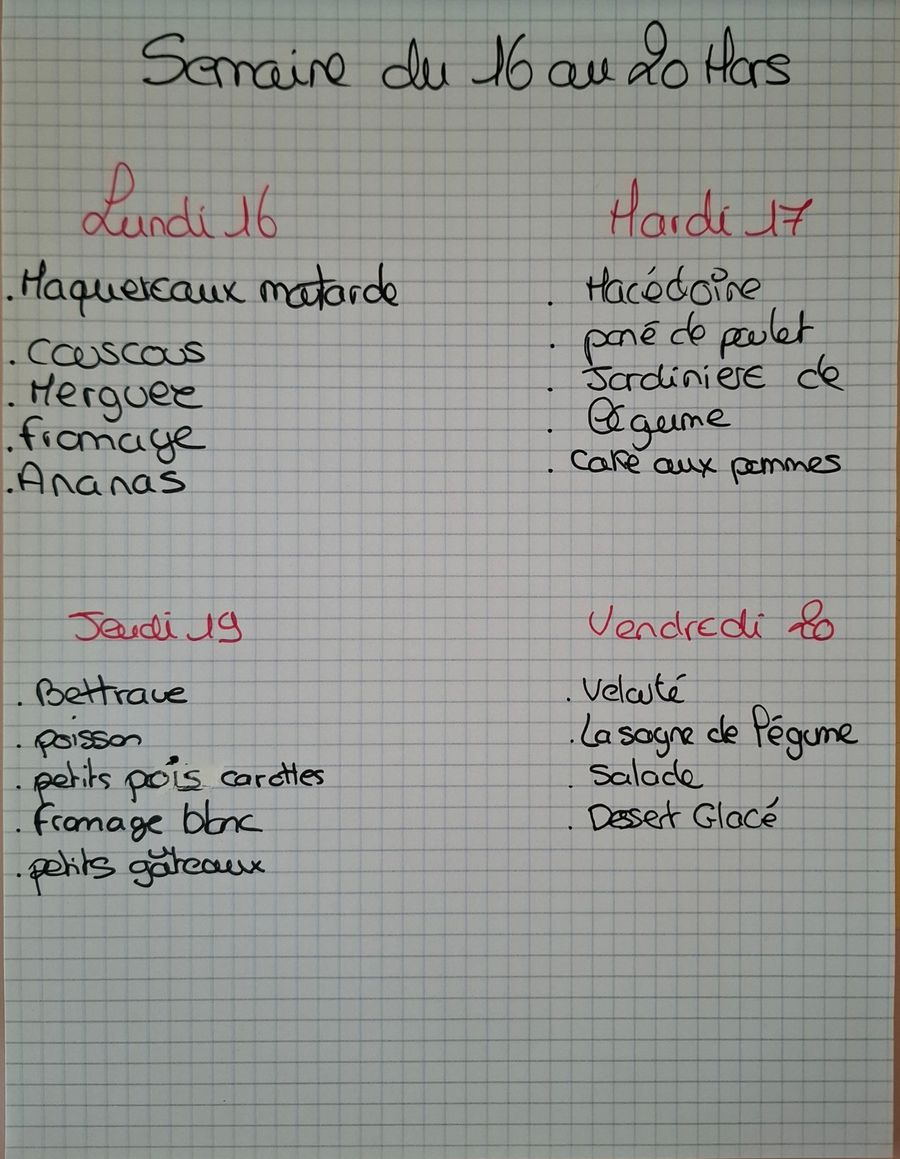 Semaine du 16 au 20 Mars
Lundi 16
. Maquereaux moutarde
. Couscous
. Merguez
. fromage
. Ananas
Mardi 17
. Macédoine
. pané de poulet
. Jardiniere de
. légume
. cake aux pommes
Jeudi 19
. Bettrave
. poisson
. petits pois carottes
. fromage blanc
. petits gâteaux
Vendredi 20
. Velouté
. Lasagne de légume
. Salade
. Dessert Glacé